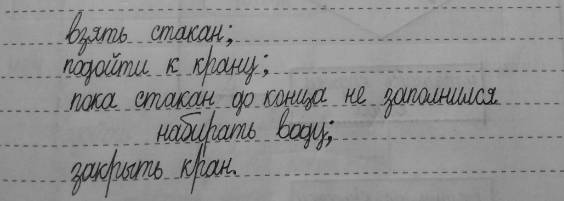 взять стакан;
подойти к крану;
пока стакан до конца не заполнился
набирать воду;
закрыть кран.